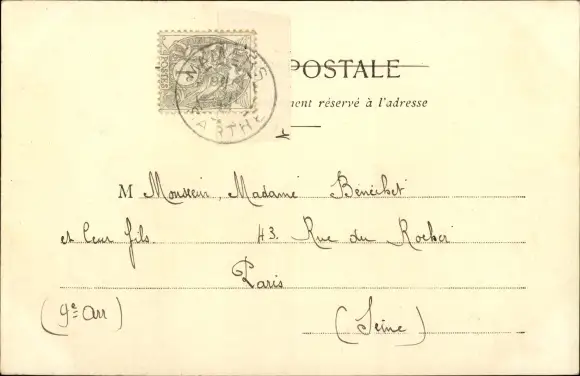 POSTALE
ment réservé à l'adresse
POSTES
SARTHE
M Monsieur, Madame Bénéchet
et leur fils. 43. Rue du Rocher
Paris
(9e arr)
(Seine)